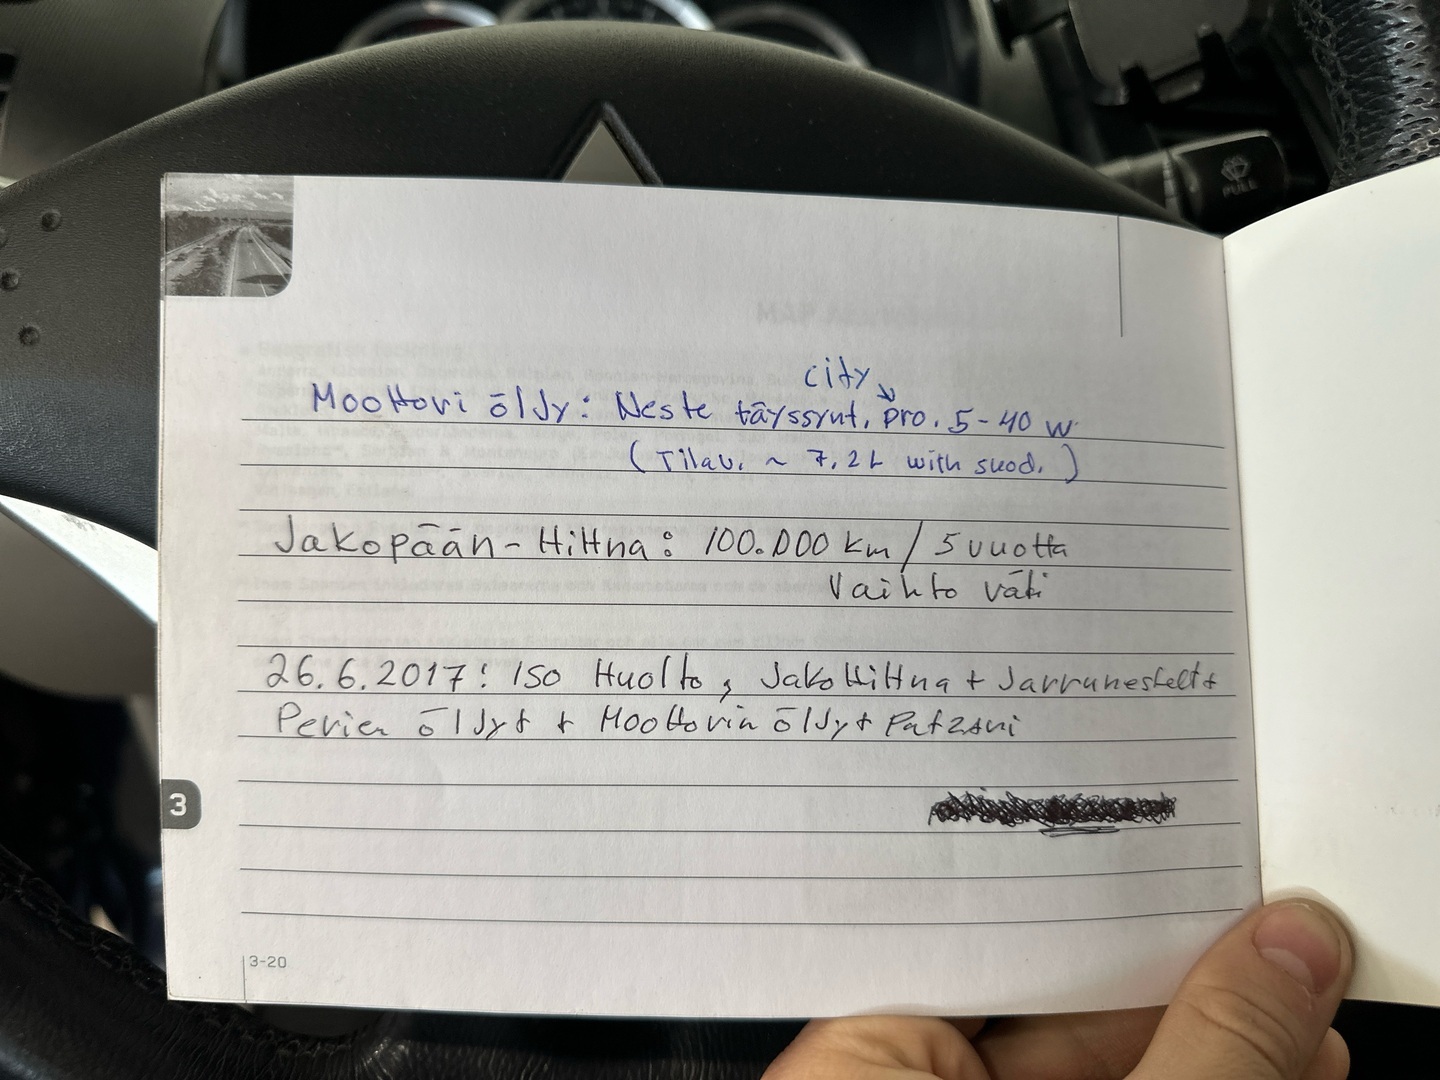 PULL
city
Moottori öljy: Neste täyssynt. pro. 5-40 W
(Tilav. ~ 7,2L with suod.)
Jakopään-Hihna: 100.000 km / 5 vuotta
Vaihto väli
26.6.2017: Iso Huolto, Jakohihna + Jarrunesteet +
Perien öljyt + Moottorin öljyt
3
3-20